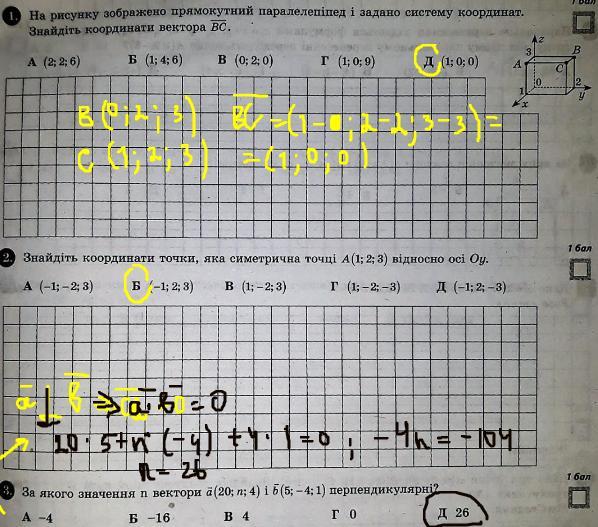 1 бал
1. На рисунку зображено прямокутний паралелепіпед і задано систему координат.
Знайдіть координати вектора BC.
А (2; 2; 6) Б (1; 4; 6) В (0; 2; 0) Г (1; 0; 9) Д (1; 0; 0)
z
3
B
A
C
0
1
2
x
y
B (0; 2; 3) BC = (1-0; 2-2; 3-3) =
C (1; 2; 3) = (1; 0; 0)
1 бал
2. Знайдіть координати точки, яка симетрична точці A(1; 2; 3) відносно осі Oy.
А (−1; −2; 3) Б (−1; 2; 3) В (1; −2; 3) Г (1; −2; −3) Д (−1; 2; −3)
a ⊥ b => a · b = 0
20 · 5 + n · (-4) + 4 · 1 = 0 ; -4n = -104
n = 26
1 бал
3. За якого значення n вектори a(20; n; 4) і b(5; −4; 1) перпендикулярні?
А −4 Б −16 В 4 Г 0 Д 26